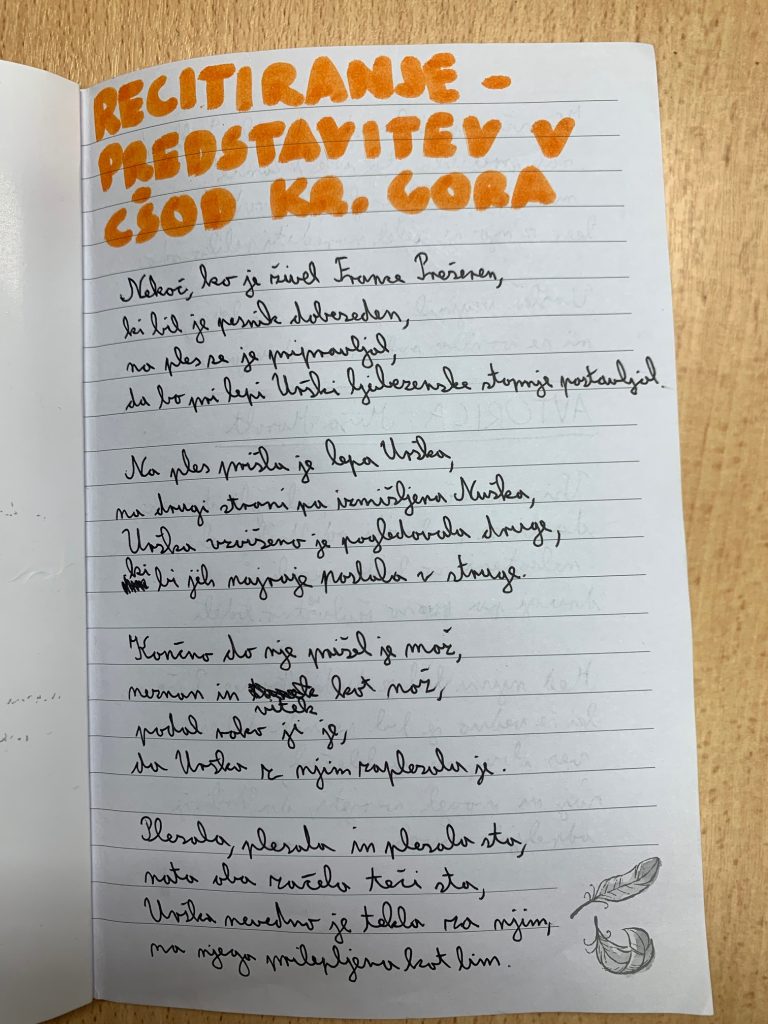 RECITIRANJE -
PREDSTAVITEV V
CŠOD KR. GORA
Nekoč, ko je živel France Prešeren,
ki bil je pesnik dobeseden,
na ples se je pripravljal,
da bo pri lepi Urški ljubezenske stopnje postavljal.
Na ples prišla je lepa Urška,
na drugi strani pa izmišljena Nuška,
Urška vzvišeno je pogledovala druge,
ki bi jih najraje poslala v struge.
Končno do nje prišel je mož,
neznan in vitek kot nož,
podal roko ji je,
da Urška z njim zaplesala je.
Plesala, plesala in plesala sta,
nato oba začela teči sta,
Urška nevedno je tekla za njim,
na njega prilepljena kot lim.